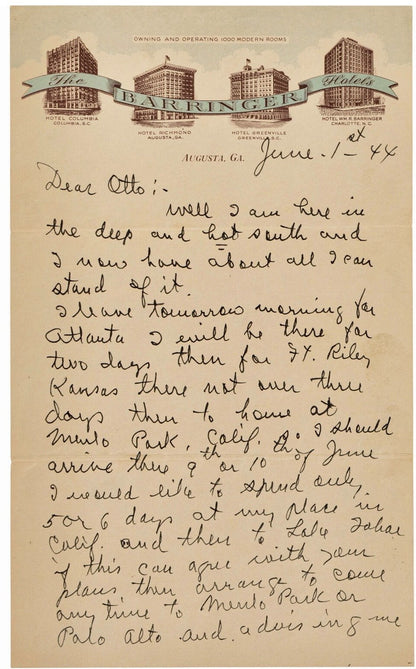 OWNING AND OPERATING 1000 MODERN ROOMS
The BARRINGER Hotels
HOTEL COLUMBIA
COLUMBIA, S.C.
HOTEL RICHMOND
AUGUSTA, GA.
HOTEL GREENVILLE
GREENVILLE, S.C.
HOTEL WM. R. BARRINGER
CHARLOTTE, N.C.
AUGUSTA, GA.
June. 1st 44
Dear Otto:-
Well I am here in
the deep and hot south and
I now have about all I can
stand of it.
I leave tomorrow morning for
Atlanta I will be there for
two days then for Ft. Riley
Kansas there not over three
days then to home at
Menlo Park, Calif. I should
arrive there 9th or 10th of June
I would like to spend only
5 or 6 days at my place in
Calif. and then to Lake Tahoe
if this can agree with your
plans then arrange to come
any time to Menlo Park or
Palo Alto and advising me